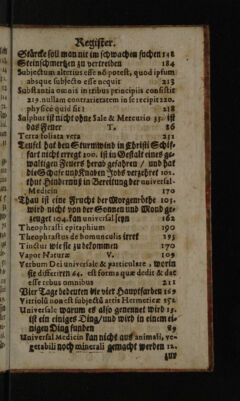 Register.
Stärcke soll man nit im schwachen suchen 148
Steinschmertzen zu vertreiben 184
Subjectum alterius esse nō potest, quod ipsum
absque subjecto esse nequit 213
Substantia omnis in tribus principiis consistit
219. nullam contrarietatem in se recipit 220.
physicè quid sit? 218
Sulphur ist nicht ohne Sale & Mercurio 35. ist
das Feuer T. 86
Terra foliata vera 251
Teufel hat den Sturmwind in Christi Schif-
fart nicht erregt 100. ist in Gestalt eines ge-
waltigen Feuers herab gefahren / und hat
die Schafe und Knaben Jobs verzehrt 101.
thut Hindernüß in Bereitung der universal-
Medicin 170
Thau ist eine Frucht der Morgenröthe 103.
wird nicht von der Sonnen und Mond ge-
zeuget 104. kan universal seyn 162
Theophrasti epitaphium 190
Theophrastus de homunculis irret 195
Tinctur wie sie zu bekommen 170
Vapor Naturæ V. 109
Verbum Dei universale & particulare, worin
sie differiren 64. est forma quæ dedit & dat
esse rebus omnibus 211
Vier Tage bedeuten die vier Hauptfarben 169
Vitriolū non est subjectū artis Hermeticæ 252
Universale warum es also genennet wird 15.
ist ein einiges Ding / und wird in einem ei-
nigen Ding funden 89
Universal Medicin kan nicht aus animali, ve-
getabili noch minerali gemacht werden 12.
zur